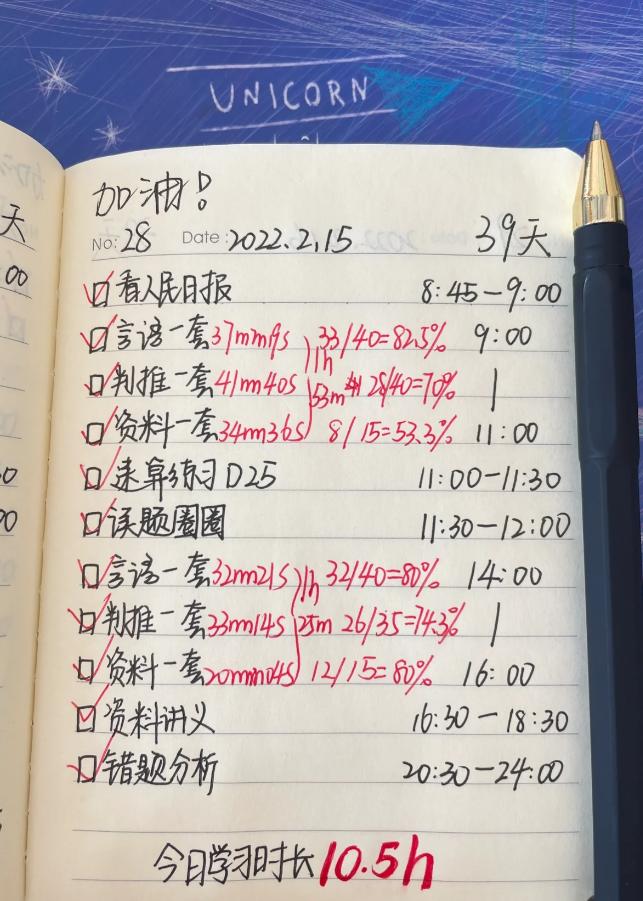 UNICORN
加油!
No: 28 Date: 2022.2.15 39天
看人民日报 8:45-9:00
言语一套37mm9s 33/40=82.5% 9:00
1h
判推一套41mm40s 53m 28/40=70% |
资料一套34m36s 8/15=53.3% 11:00
速算练习D25 11:00-11:30
读题圈圈 11:30-12:00
言语一套32mm21s 1h 32/40=80% 14:00
判推一套33mm14s 25m 26/35=74.3% |
资料一套20mm04s 12/15=80% 16:00
资料讲义 16:30-18:30
错题分析 20:30-24:00
今日学习时长10.5h
天
00